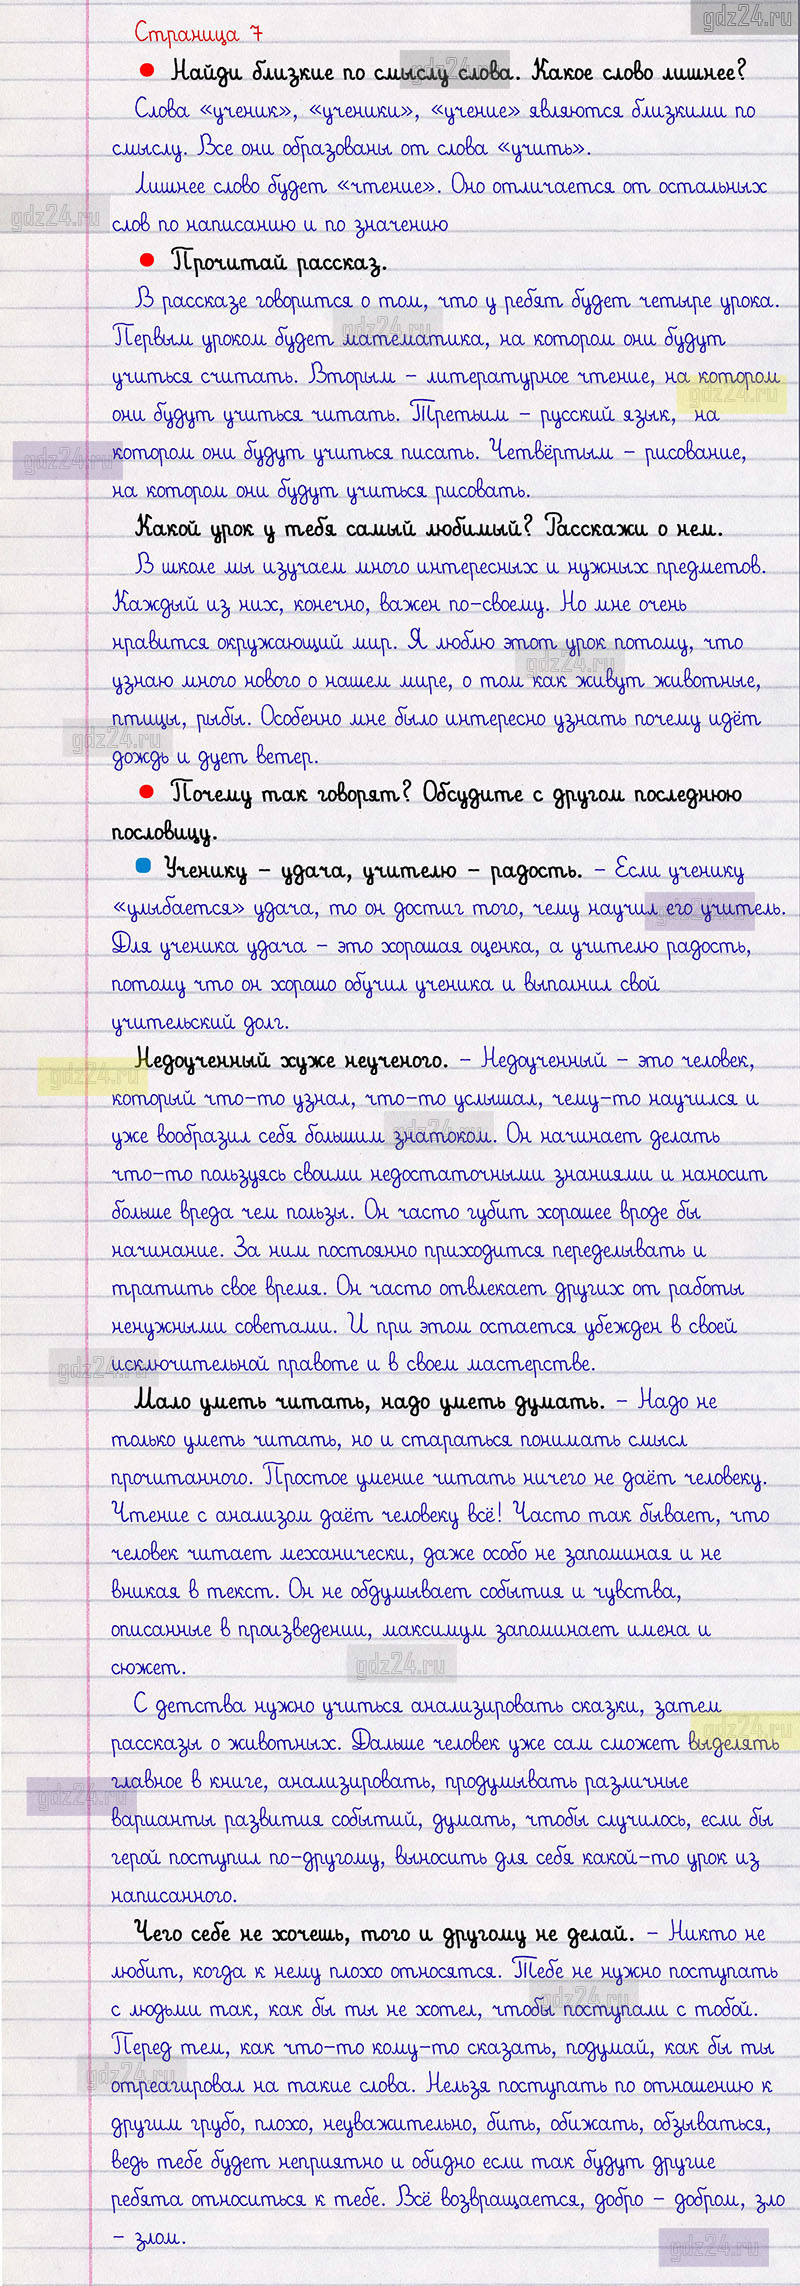 gdz24.ru
Страница 7
Найди близкие по смыслу слова. Какое слово лишнее?
gdz24.ru
Слова «ученик», «ученики», «учение» являются близкими по
смыслу. Все они образованы от слова «учить».
Лишнее слово будет «чтение». Оно отличается от остальных
gdz24.ru
слов по написанию и по значению
Прочитай рассказ.
В рассказе говорится о том, что у ребят будет четыре урока.
gdz24.ru
Первым уроком будет математика, на котором они будут
учиться считать. Вторым – литературное чтение, на котором
gdz24.ru
они будут учиться читать. Третьим – русский язык, на
котором они будут учиться писать. Четвёртым – рисование,
gdz24.ru
на котором они будут учиться рисовать.
Какой урок у тебя самый любимый? Расскажи о нем.
В школе мы изучаем много интересных и нужных предметов.
Каждый из них, конечно, важен по-своему. Но мне очень
нравится окружающий мир. Я люблю этот урок потому, что
gdz24.ru
узнаю много нового о нашем мире, о том как живут животные,
птицы, рыбы. Особенно мне было интересно узнать почему идёт
gdz24.ru
дождь и дует ветер.
Почему так говорят? Обсудите с другом последнюю
пословицу.
Ученику – удача, учителю – радость. – Если ученику
«улыбается» удача, то он достиг того, чему научил его учитель.
gdz24.ru
Для ученика удача – это хорошая оценка, а учителю радость,
потому что он хорошо обучил ученика и выполнил свой
учительский долг.
Недоученный хуже неученого. – Недоученный – это человек,
gdz24.ru
который что-то узнал, что-то услышал, чему-то научился и
уже вообразил себя большим знатоком. Он начинает делать
gdz24.ru
что-то пользуясь своими недостаточными знаниями и наносит
больше вреда чем пользы. Он часто губит хорошее вроде бы
начинание. За ним постоянно приходится переделывать и
тратить свое время. Он часто отвлекает других от работы
ненужными советами. И при этом остается убежден в своей
исключительной правоте и в своем мастерстве.
gdz24.ru
Мало уметь читать, надо уметь думать. – Надо не
только уметь читать, но и стараться понимать смысл
прочитанного. Простое умение читать ничего не даёт человеку.
Чтение с анализом даёт человеку всё! Часто так бывает, что
человек читает механически, даже особо не запоминая и не
вникая в текст. Он не обдумывает события и чувства,
описанные в произведении, максимум запоминает имена и
сюжет.
gdz24.ru
С детства нужно учиться анализировать сказки, затем
gdz24.ru
рассказы о животных. Дальше человек уже сам сможет выделять
главное в книге, анализировать, продумывать различные
gdz24.ru
варианты развития событий, думать, чтобы случилось, если бы
герой поступил по-другому, выносить для себя какой-то урок из
написанного.
Чего себе не хочешь, того и другому не делай. – Никто не
любит, когда к нему плохо относятся. Тебе не нужно поступать
gdz24.ru
с людьми так, как бы ты не хотел, чтобы поступали с тобой.
Перед тем, как что-то кому-то сказать, подумай, как бы ты
gdz24.ru
отреагировал на такие слова. Нельзя поступать по отношению к
другим грубо, плохо, неуважительно, бить, обижать, обзываться,
ведь тебе будет неприятно и обидно если так будут другие
ребята относиться к тебе. Всё возвращается, добро – добром, зло
– злом.
gdz24.ru